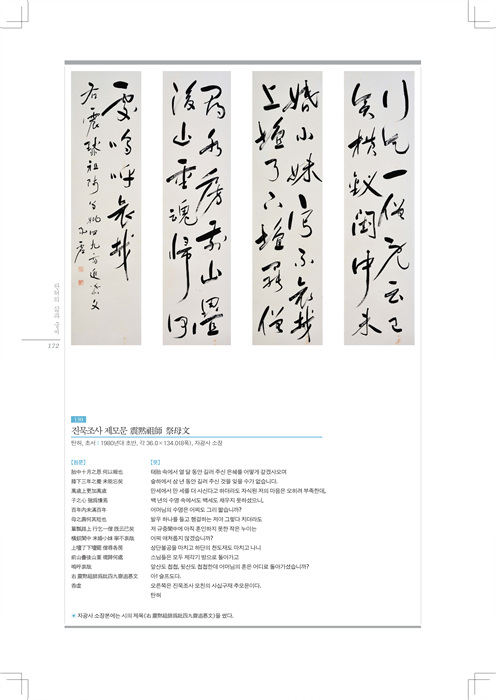 行乞一僧旣云已
矣橫釵閨中未
婚小妹寧不哀哉
上壇了下壇罷僧
尋各房前山疊
後山重魂歸何
處嗚呼哀哉
탄허의 삶과 글씨
172
진묵조사 제모문 震黙祖師 祭母文
탄허, 초서 : 1980년대 초반, 각 36.0×134.0(8폭), 자광사 소장
[原文]
胎中十月之恩 何以報也
膝下三年之養 未能忘矣
萬歲上更加萬歲
子之心 猶爲慊焉
百年內未滿百年
母之壽何其短也
簞瓢路上 行乞一僧 旣云已矣
橫釵閨中 未婚小妹 寧不哀哉
上壇了下壇罷 僧尋各房
前山疊後山重 魂歸何處
嗚呼哀哉
右 震黙祖師爲妣四九齋追慕文
呑虛
태胎 속에서 열 달 동안 길러 주신 은혜를 어떻게 갚겠사오며
슬하에서 삼 년 동안 길러 주신 것을 잊을 수가 없습니다.
만세에서 만 세를 더 사신다고 하더라도 자식된 저의 마음은 오히려 부족한데,
백 년의 수명 속에서도 백세도 채우지 못하셨으니,
어머님의 수명은 어찌도 그리 짧습니까?
발우 하나를 들고 행걸하는 저야 그렇다 치더라도
저 규중閨中에 아직 혼인하지 못한 작은 누이는
어찌 애처롭지 않겠습니까?
상단불공을 마치고 하단의 천도재도 마치고 나니
스님들은 모두 제각기 방으로 돌아가고
앞산도 첩첩, 뒷산도 첩첩한데 어머님의 혼은 어디로 돌아가셨습니까?
아! 슬프도다.
오른쪽은 진묵조사 모친의 사십구재 추모문이다.
탄허
※ 자광사 소장본에는 시의 제목(右 震黙祖師爲妣四九齋追慕文)을 썼다.